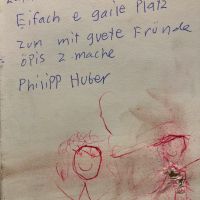 Eifach e gaile Platz
zum mit guete Fründe
öpis z mache
Philipp Huber